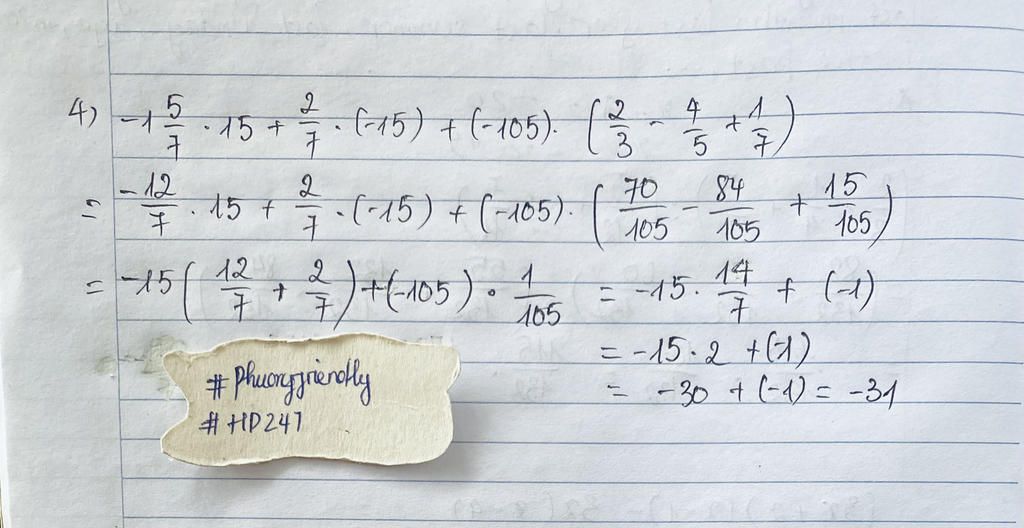 4) -1 5/7 · 15 + 2/7 · (-15) + (-105) · (2/3 - 4/5 + 1/7)
= -12/7 · 15 + 2/7 · (-15) + (-105) · (70/105 - 84/105 + 15/105)
= -15 (12/7 + 2/7) + (-105) · 1/105 = -15 · 14/7 + (-1)
= -15 · 2 + (-1)
= -30 + (-1) = -31
# Phuongfriendly
# HD247